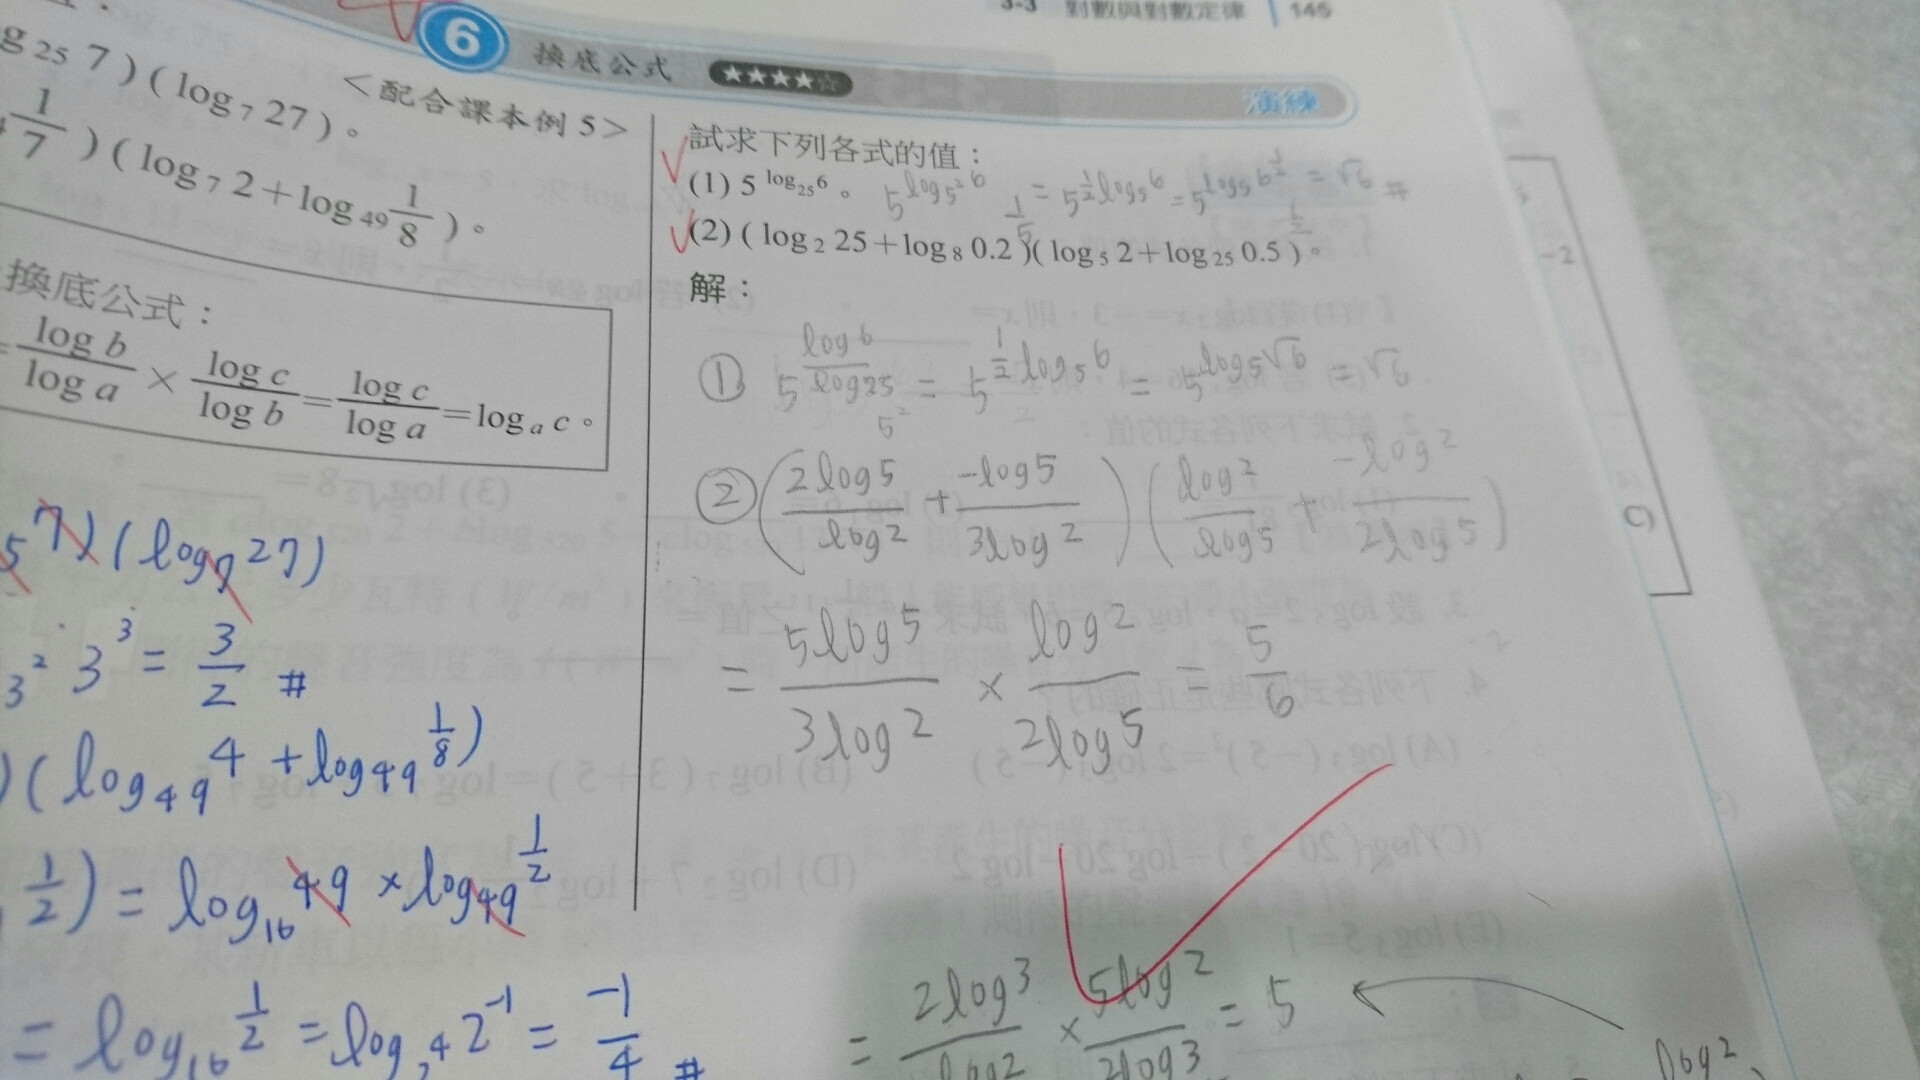 3-3 對數與對數定律 145
6 換底公式 ★★★★☆
演練
g 25 7 ) ( log 7 27 ) 。
<配合課本例 5>
1/7 ) ( log 7 2 + log 49 1/8 ) 。
換底公式：
= log b / log a × log c / log b = log c / log a = log a c 。
5 7 ) ( log 7 27 )
3² 3³ = 3/2 #
) ( log 49 4 + log 49 1/8 )
1/2 ) = log 16 49 × log 49 1/2
= log 16 1/2 = log 2⁴ 2⁻¹ = -1/4 #
試求下列各式的值：
(1) 5 log 25 6 。 5 log 5² 6 = 5 1/2 log 5 6 = 5 log 5 6 1/2 = √6 #
1/5 1/2
(2) ( log 2 25 + log 8 0.2 )( log 5 2 + log 25 0.5 ) 。
解：
① 5 log 6 / log 25 = 5 1/2 log 5 6 = 5 log 5 √6 = √6
5²
② ( 2 log 5 / log 2 + -log 5 / 3 log 2 ) ( log 2 / log 5 + -log 2 / 2 log 5 )
= 5 log 5 / 3 log 2 × log 2 / 2 log 5 = 5/6
= 2 log 3 / log 2 × 5 log 2 / 2 log 3 = 5
log 2
-2
C)